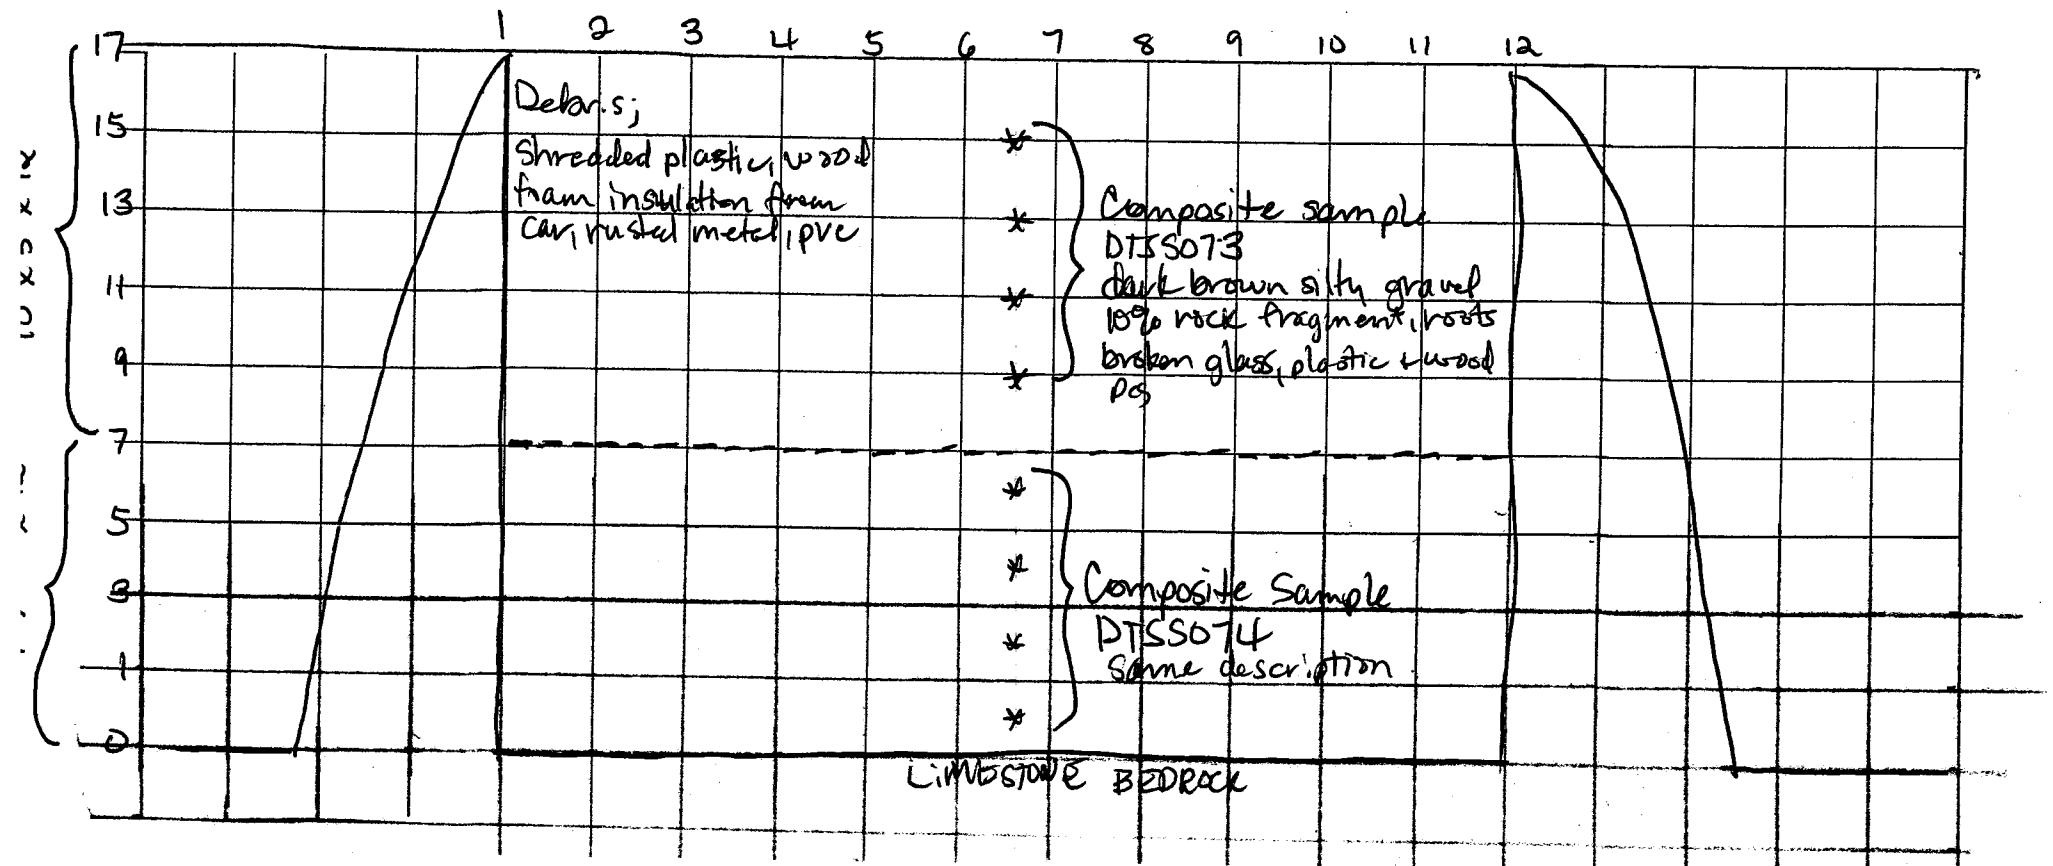 1 2 3 4 5 6 7 8 9 10 11 12
17
15
13
11
9
7
5
3
1
0
Debris;
Shredded plastic, wood
foam insulation from
car, rusted metal, pvc
Composite sample
DTSS073
dark brown silty gravel
10% rock fragment, roots
broken glass, plastic + wood
pcs
Composite Sample
DTSS074
Same description
LIMESTONE BEDROCK